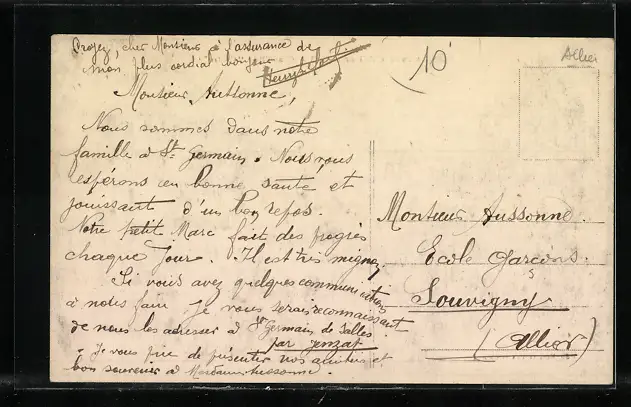 Croyez, cher Monsieur à l'assurance de
mon plus cordial bonjour
Monsieur Aussonne,
Nous sommes dans notre
famille à St Germain. Nous vous
espérons en bonne santé et
jouissant d'un bon repos.
Notre petit Marc fait des progrès
chaque jour. Il est très mignon
Si vous avez quelques communications
à nous faire je vous serais reconnaissant
de nous les adresser à St Germain de Salles
par Jenzat
Je vous prie de présenter nos amitiés et
bon souvenir à Madame Aussonne.
10
Allier
Monsieur Aussonne
Ecole Garçons
Souvigny
(Allier)